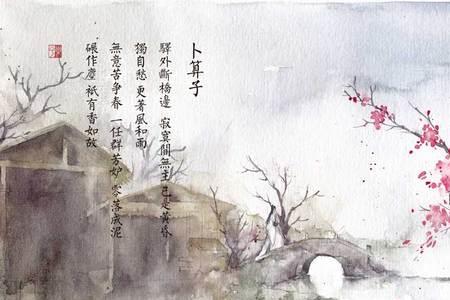 卜算子
驛外斷橋邊 寂寞開無主 已是黃昏
獨自愁 更著風和雨
無意苦争春 一任群芳妒 零落成泥
碾作塵 祇有香如故